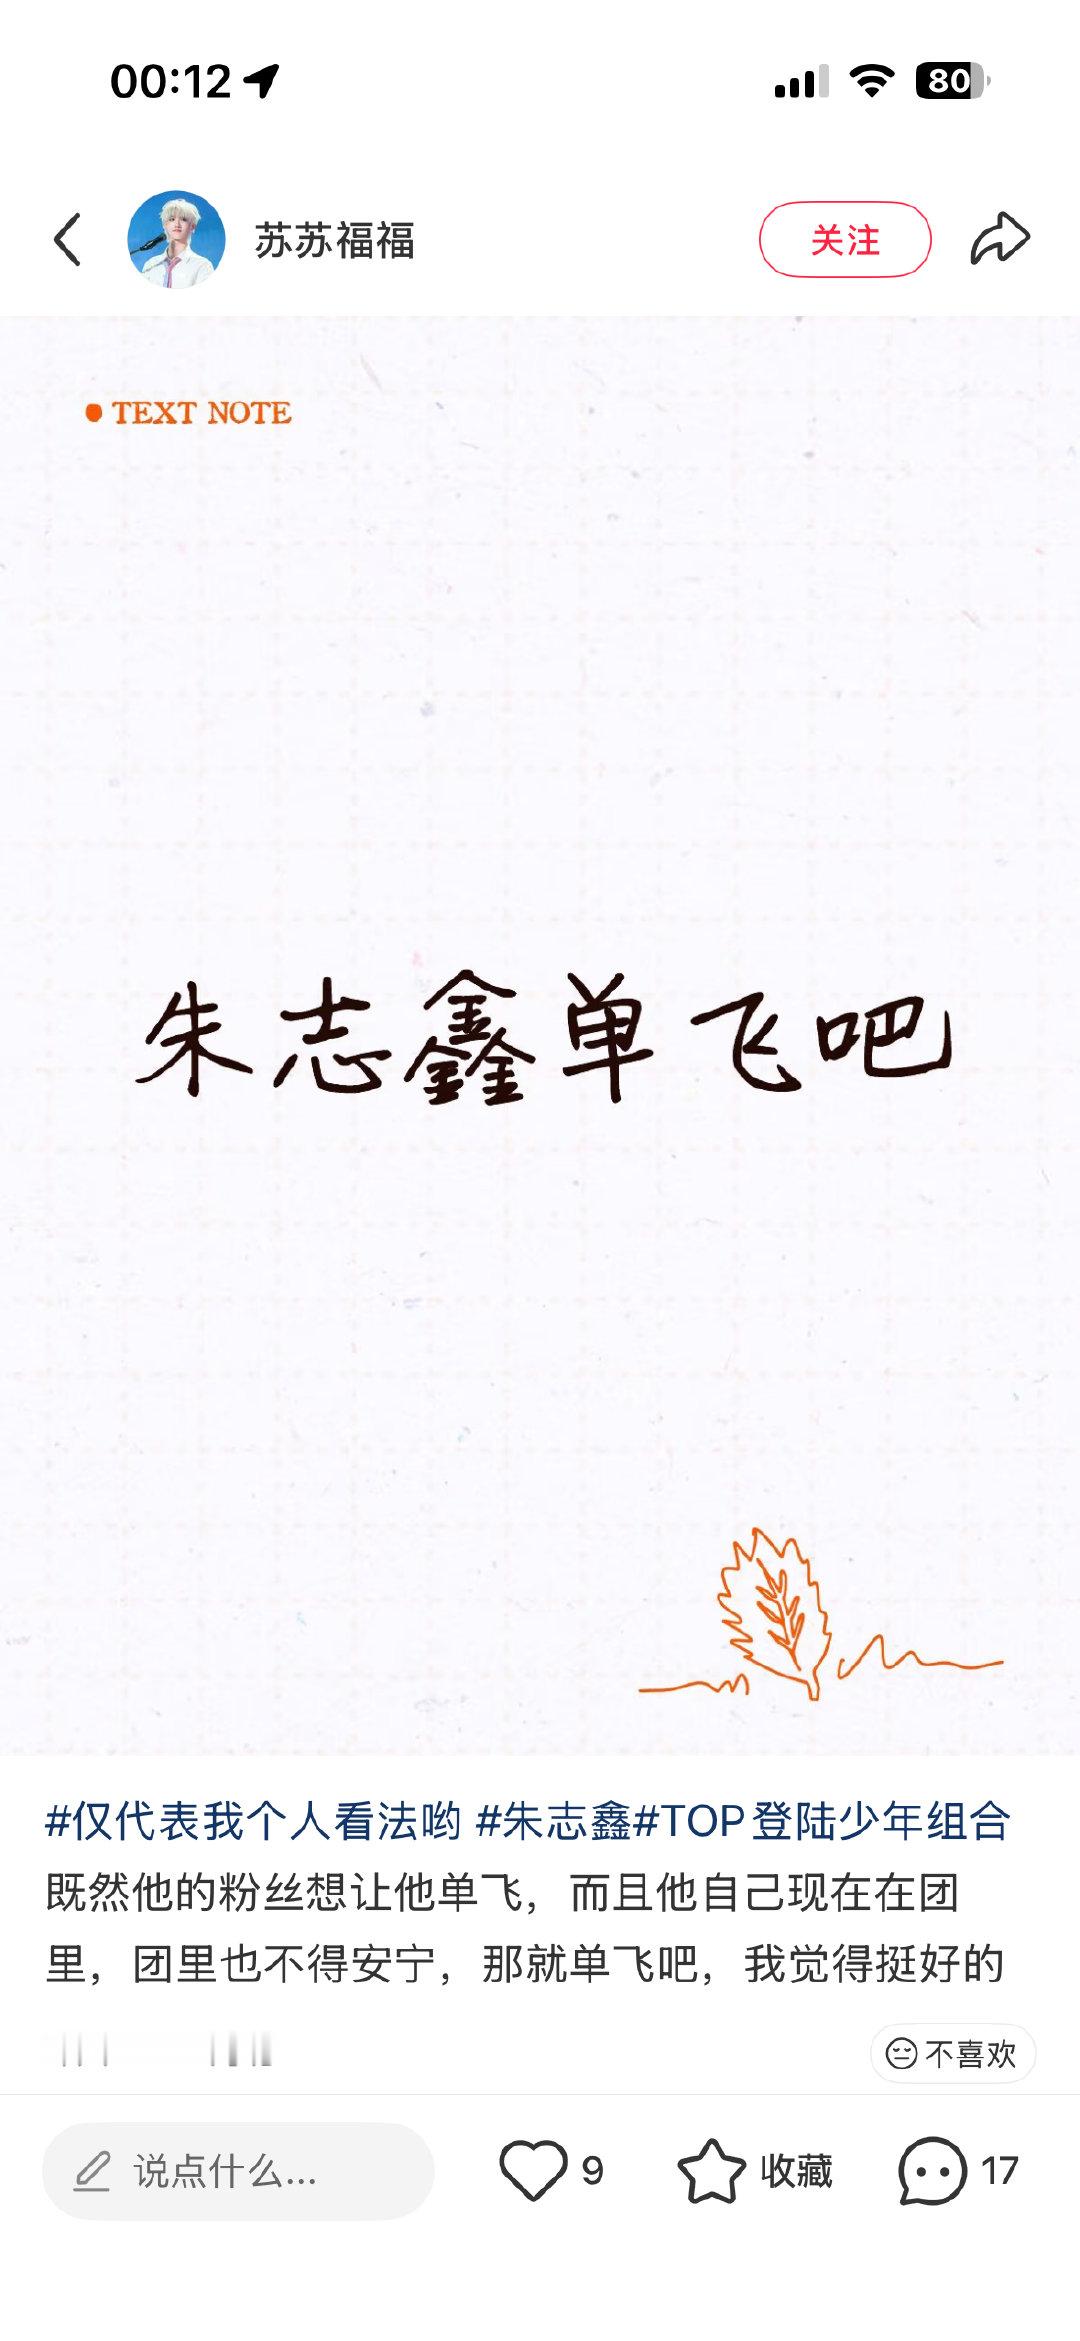 00:12
80
苏苏福福
关注
TEXT NOTE
朱志鑫单飞吧
#仅代表我个人看法哟 #朱志鑫#TOP登陆少年组合
既然他的粉丝想让他单飞，而且他自己现在在团
里，团里也不得安宁，那就单飞吧，我觉得挺好的
不喜欢
说点什么...
9
收藏
17